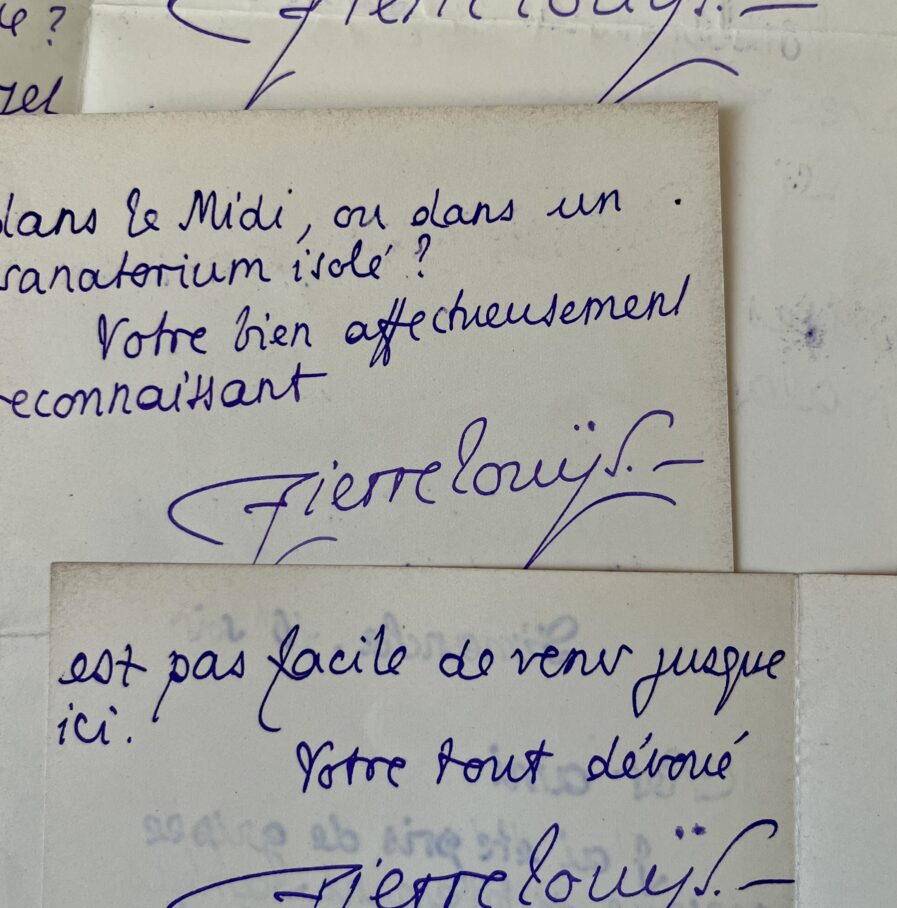 e ?
Pierre Louÿs. –
dans le Midi, ou dans un
sanatorium isolé ?
Votre bien affectueusement
reconnaissant
Pierre Louÿs. –
est pas facile de venir jusque
ici.
Votre tout dévoué
Pierre Louÿs. –